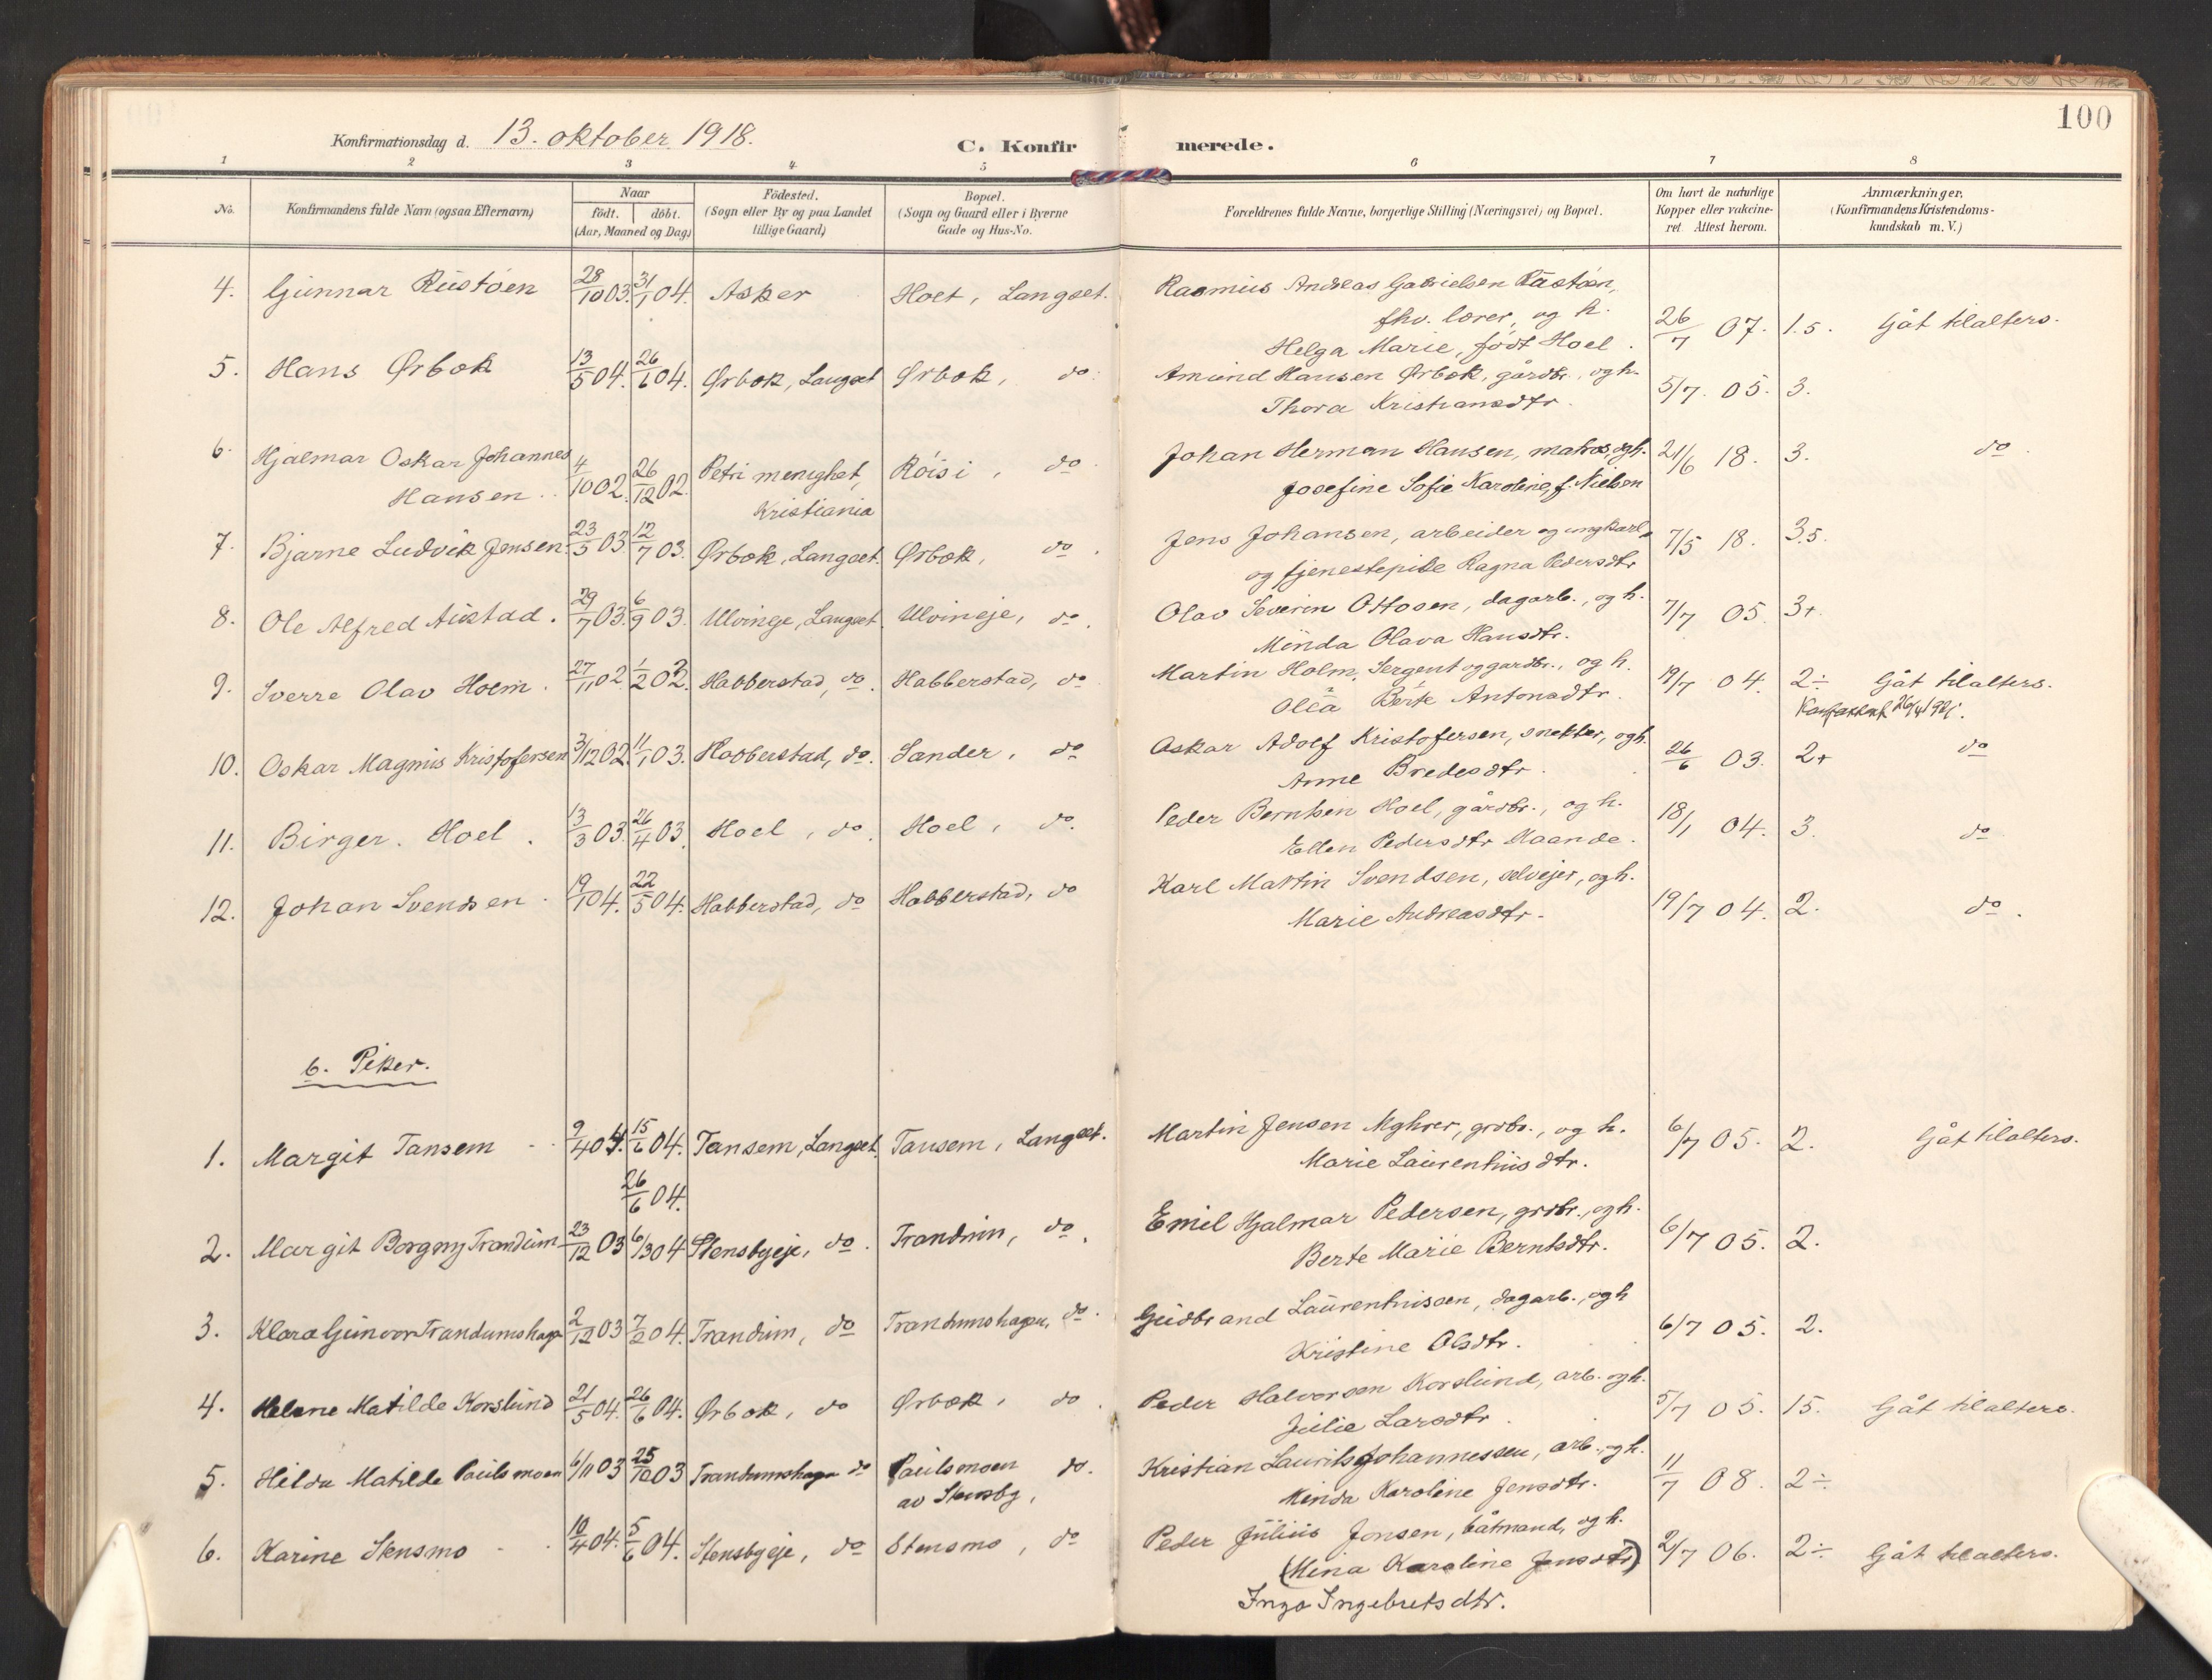 100
Konfirmationsdag d. 13. oktober 1918. C. Konfirmerede.
1 2 3 4 5 6 7 8
No. Konfirmandens fulde Navn (ogsaa Efternavn) Naar født. døbt. (Aar, Maaned og Dag) Födested. (Sogn eller By og paa Landet tillige Gaard) Bopæl. (Sogn og Gaard eller i Byerne Gade og Hus-No. Forældrenes fulde Navne, borgerlige Stilling (Næringsvei) og Bopæl. Om havt de naturlige Kopper eller vakcineret Attest herom. Anmærkninger, (Konfirmandens Kristendomskundskab m. V.)
4. Gunnar Rustøen 28/10 03. 31/1 04. Asker Hoel, Langset. Rasmus Andreas Gabrielsen Rustøen,
fhv. lærer, og h.
Helga Marie, født Hoel. 26/7 07. 1.5. Gåt tilalters.
5. Hans Ørbæk 13/5 04. 26/6 04. Ørbæk, Langset Ørbæk, do. Amund Hansen Ørbæk, gårdbr., og h.
Thora Kristiansdtr. 5/7. 05. 3.
6. Hjalmar Oskar Johannes
Hansen 4/10 02. 26/12 02. Petri menighet,
Kristiania Röisi, do. Johan Herman Hansen, matros, og h.
Josefine Sofie Karoline, f. Nielsen 21/6 18. 3. do.
7. Bjarne Ludvik Jensen. 23/5 03 12/7 03. Ørbæk, Langset. Ørbæk, do. Jens Johansen, arbeider og ungkarl,
og tjenestepike Ragna Pedersdtr 7/5 18. 3.5.
8. Ole Alfred Austad. 29/7 03. 6/9 03. Ulvineje, Langset Ulvineje, do. Olav Severin Ottosen, dagarb., og h.
Minda Olava Hansdtr. 7/7 05. 3+
9. Sverre Olav Holm. 27/11 02. 1/2 03. Habberstad, do. Habberstad, do Martin Holm, Sergent og gardbr., og h.
Olea Berte Antonsdtr. 19/7 04. 2÷ Gåt tilalters.
26/4 1921.
10. Oskar Magnus Kristofersen 3/12 02. 11/1 03. Habberstad, do. Sander, do Oskar Adolf Kristofersen, snekker, og h.
Anne Bredesdtr. 26/6 03. 2+ do
11. Birger. Hoel. 13/3 03. 26/4 03. Hoel, do. Hoel, do. Peder Berntsen Hoel, gårdbr., og h.
Ellen Pedersdtr Kaande. 18/1 04. 3. do
12. Johan Svendsen. 19/1 04. 22/5 04. Habberstad, do Habberstad, do Karl Martin Svendsen, selveier, og h.
Marie Andreasdtr. 19/7 04. 2. do.
b. Piker.
1. Margit Tansem 9/4 04. 15/6 04. Tansem, Langset. Tansem, Langset. Martin Jensen Myhrer, grdbr., og h.
Marie Laurentiusdtr. 6/7 05. 2. Gåt tilalters.
26/6 04.
2. Margit Borgny Trandum 23/12 03 6/3 04 Stensbyeje, do. Trandum, do. Emil Hjalmar Pedersen, grdbr., og h.
Berte Marie Berntsdtr. 6/7 05. 2.
3. Klara Gunvor Trandumshagen 2/12 03 7/2 04. Trandum, do Trandumshagen, do. Gudbrand Laurentiussen, dagarb., og h
Kristine Olsdtr. 6/7 05. 2.
4. Helene Matilde Korslund 21/5 04. 26/6 04. Ørbæk, do Ørbæk, do. Peder Halvorsen Korslund, arb. og h.
Julie Larsdtr. 5/7 05. 15. Gåt tilalters.
5. Hilda Matilde Paulsmoen 6/11 03 25/12 03 Trandumshagen do Paulsmoen do.
av Stensby, Kristian Laurits Johannessen, arb., og h.
Minda Karoline Jensdtr. 11/7 08. 2÷
6. Karine Stensmo 10/4 04. 5/6 04. Stensbyeje, do Stensmo, do Peder Julius Jonsen, båtmand, og h.
(Mina Karoline Jensdtr) 2/7 06. 2÷ Gåt tilalters.
Inga Ingebretsdtr.